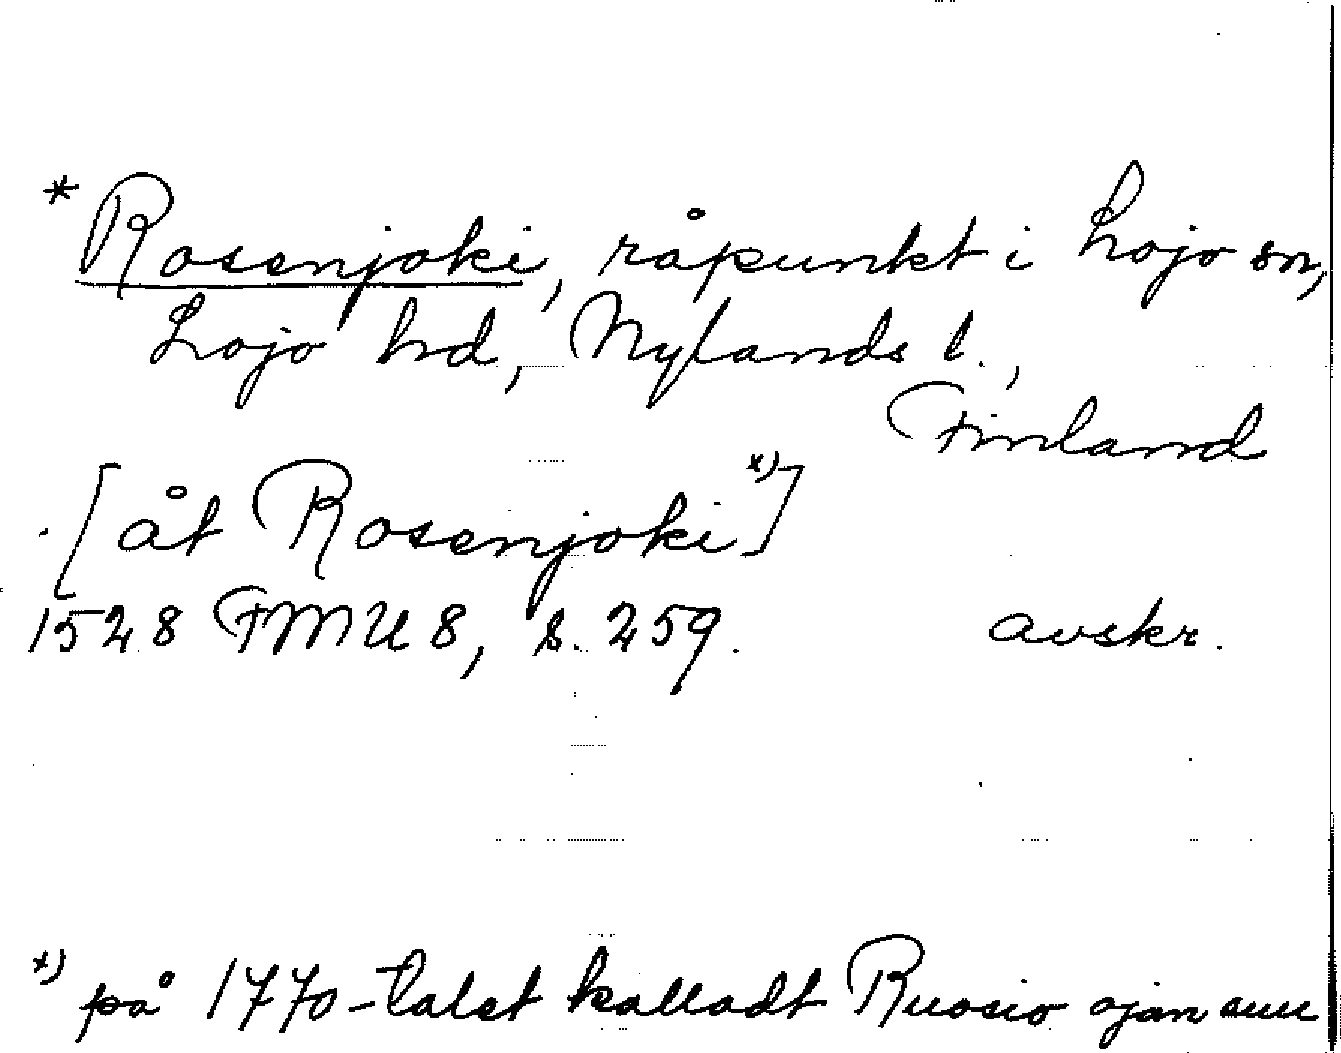 * Rosenjoki, råpunkt i Lojo sn,
Lojo hd, Nylands l.,
Finland
[åt Rosenjoki x)]
1528 FMU 8, s. 259. avskr.
x) på 1770-talet kalladt Ruosio ojan suu